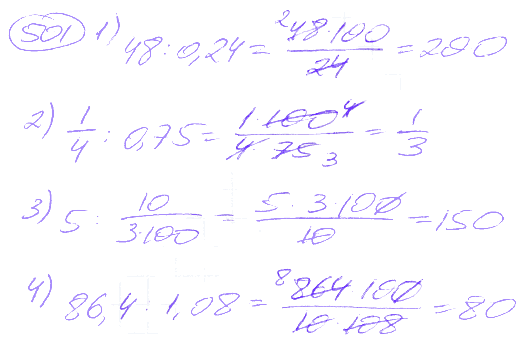 501 1) 48 : 0,24 = 48·100/24 = 200
2) 1/4 : 0,75 = 1·100/4·75 = 1/3
3) 5 : 10/3·100 = 5·3·100/10 = 150
4) 86,4 : 1,08 = 864·100/10·108 = 80